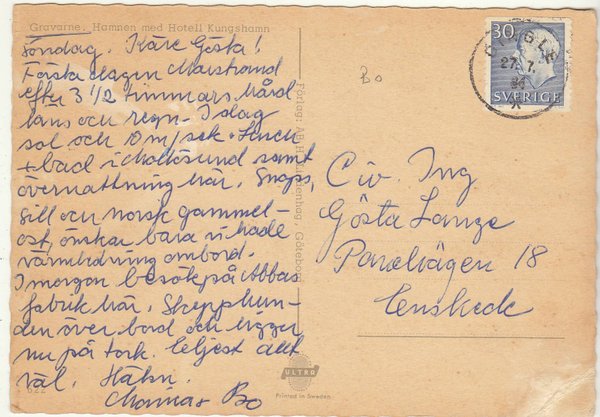 Gravarne. Hamnen med Hotell Kungshamn
Söndag. Käre Gösta!
Första dagen Marstrand
efter 3 1/2 timmars hård
läns och regn. I dag
sol och 10 m/sek. Lunch
+ bad i Mollösund samt
övernattning här. Snaps,
sill och norsk gammel-
ost, önskar bara vi hade
värmeledning ombord.
I morgon besök på Abbas
fabrik här. Skepphun-
den över bord och ligger
nu på tork. Eljest allt
väl. Hälsn.
Bo
622
Förlag: AB H Göteborg
ULTRA
Printed in Sweden
Bo
30
SVERIGE
27. 7.
Civ. Ing
Gösta Lange
18
Enskede